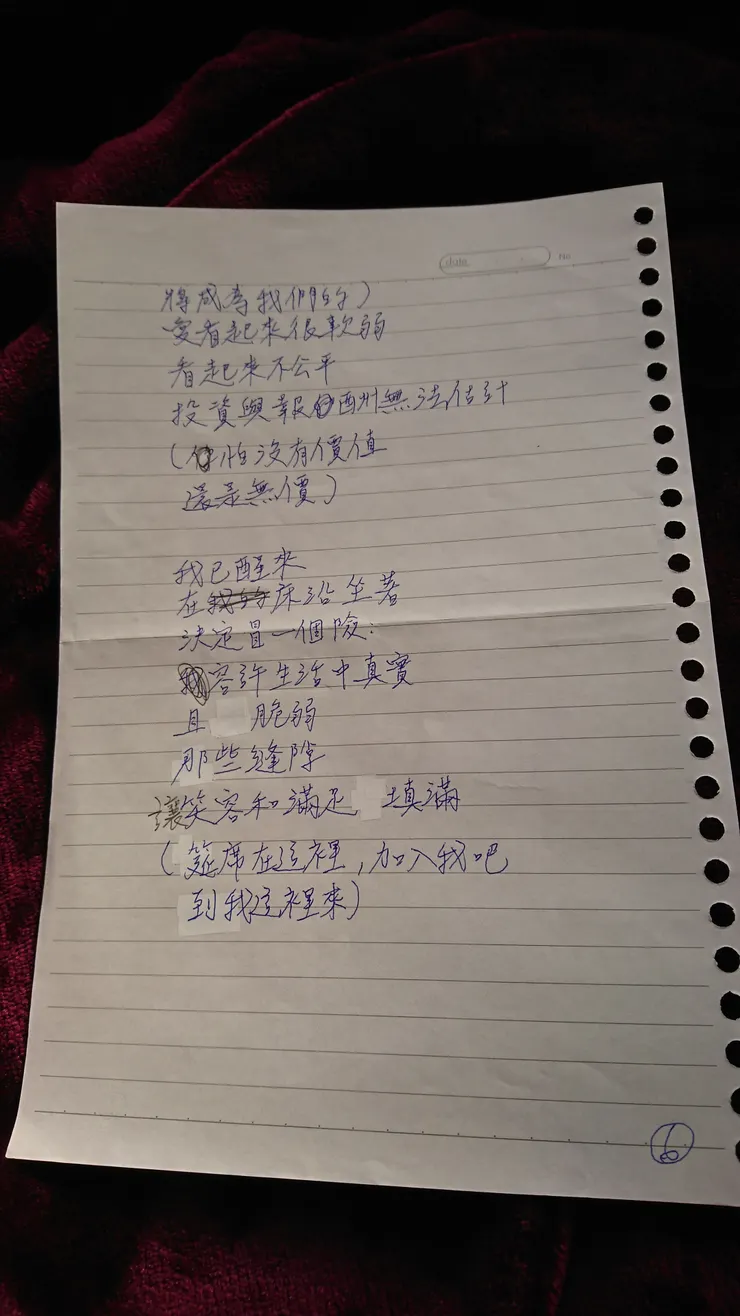 date No
將成為我們的)
愛看起來很軟弱
看起來不公平
投資與報酬無法估計
(怕沒有價值
還是無價)
我已醒來
在床沿坐著
決定冒一個險:
容許生活中真實
且脆弱
那些縫隙
讓笑容和滿足填滿
(筵席在這裡,加入我吧
到我這裡來)
6